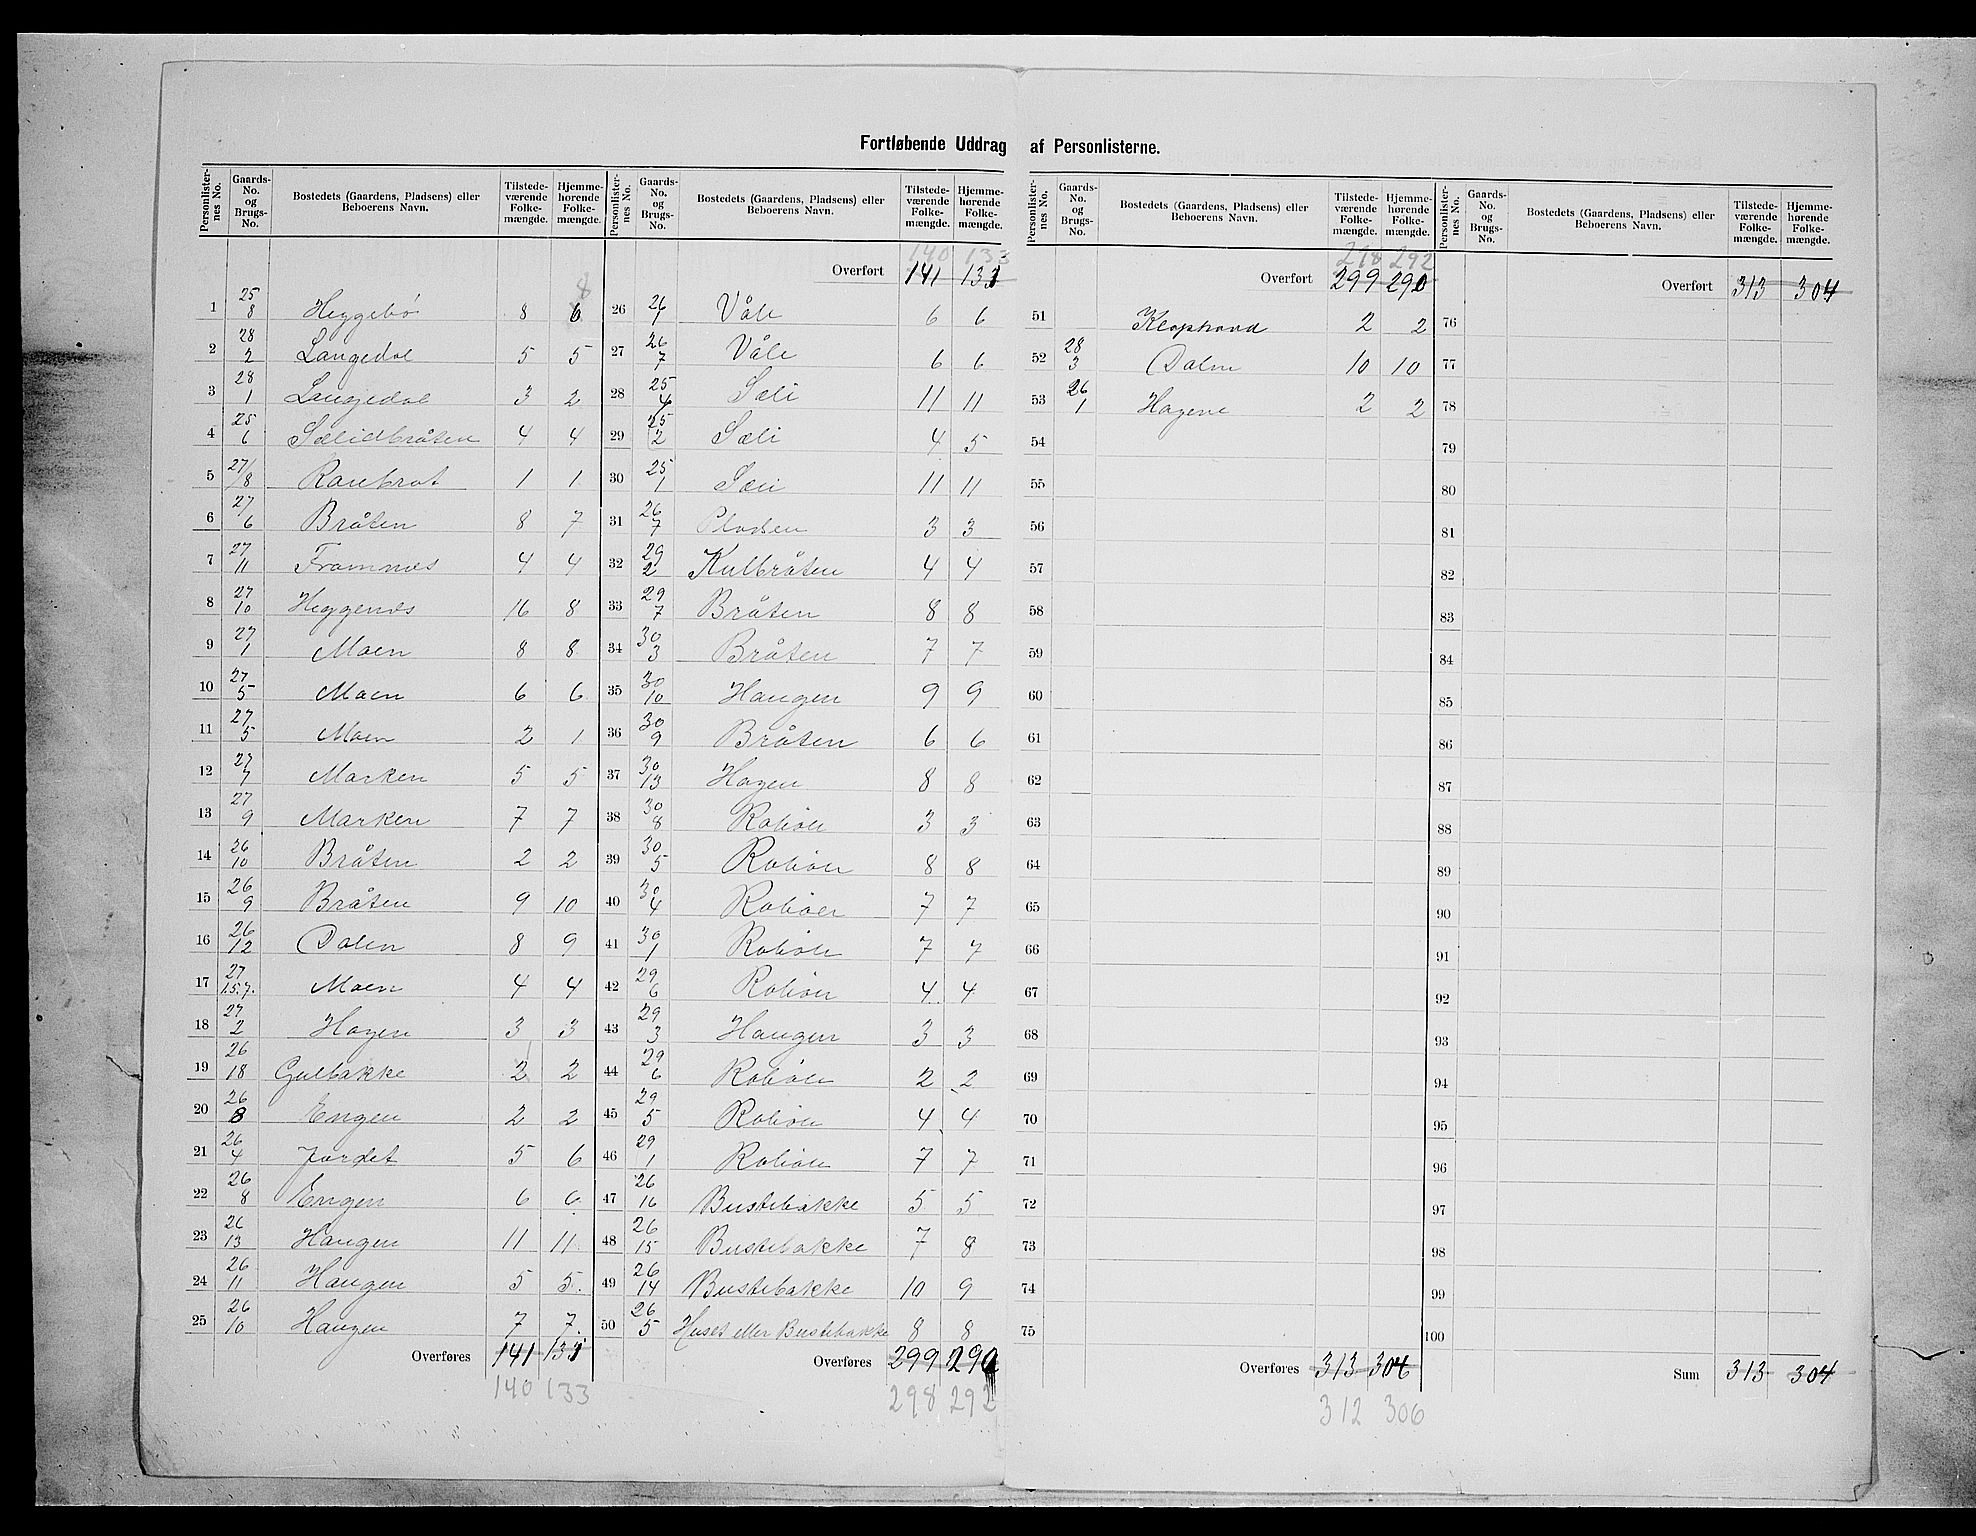 Fortløbende Uddrag af Personlisterne.
Personlister-nes No. Gaards-No. og Brugs-No. Bostedets (Gaardens, Pladsens) eller Beboerens Navn. Tilstede-værende Folke-mængde. Hjemme-hørende Folke-mængde.
8
1 25/8 Heggebø 8 6
2 28/2 Langedal 5 5
3 28/1 Langedal 3 2
4 25/6 Sælidbråten 4 4
5 27/8 Ranbrot 1 1
6 27/6 Bråten 8 7
7 27/11 Framnæs 4 4
8 27/10 Heggenæs 16 8
9 27/1 Moen 8 8
10 27/5 Moen 6 6
11 27/5 Moen 2 1
12 27/7 Marken 5 5
13 27/9 Marken 7 7
14 26/10 Bråten 2 2
15 26/9 Bråten 9 10
16 26/12 Dalen 8 9
17 27/1.5.7. Moen 4 4
18 27/2 Hagen 3 3
19 26/18 Gulbakke 2 2
20 26/8 Engen 2 2
21 26/4 Jordet 5 6
22 26/8 Engen 6 6
23 26/13 Haugen 11 11
24 26/11 Haugen 5 5
25 26/10 Haugen 7 7
Overføres 141 131
140 133
Personlister-nes No. Gaards-No. og Brugs-No. Bostedets (Gaardens, Pladsens) eller Beboerens Navn. Tilstede-værende Folke-mængde. Hjemme-hørende Folke-mængde.
140 133
Overført 141 131
26 26/1 Våle 6 6
27 26/7 Våle 6 6
28 25/4 Sæli 11 11
29 25/2 Sæli 4 5
30 25/1 Sæli 11 11
31 26/7 Pladsen 3 3
32 29/2 Kulbråten 4 4
33 29/7 Bråten 8 8
34 30/3 Bråten 7 7
35 30/10 Haugen 9 9
36 30/9 Bråten 6 6
37 30/13 Hagen 8 8
38 30/8 Robøle 3 3
39 30/5 Robøle 8 8
40 30/4 Robøle 7 7
41 30/1 Robøle 7 7
42 29/6 Robøle 4 4
43 29/3 Haugen 3 3
44 29/6 Robøle 2 2
45 29/5 Robøle 4 4
46 29/1 Robøle 7 7
47 26/16 Bustebakke 5 5
48 26/15 Bustebakke 7 8
49 26/14 Bustebakke 10 9
50 26/5 Huset eller Bustebakke 8 8
Overføres 299 290
298 292
Personlister-nes No. Gaards-No. og Brugs-No. Bostedets (Gaardens, Pladsens) eller Beboerens Navn. Tilstede-værende Folke-mængde. Hjemme-hørende Folke-mængde.
292
Overført 299 290
51 2 2
52 28/3 Dalen 10 10
53 26/1 Hagene 2 2
54
55
56
57
58
59
60
61
62
63
64
65
66
67
68
69
70
71
72
73
74
75
Overføres 313 304
312 306
Personlister-nes No. Gaards-No. og Brugs-No. Bostedets (Gaardens, Pladsens) eller Beboerens Navn. Tilstede-værende Folke-mængde. Hjemme-hørende Folke-mængde.
Overført 313 304
76
77
78
79
80
81
82
83
84
85
86
87
88
89
90
91
92
93
94
95
96
97
98
99
100
Sum 313 304